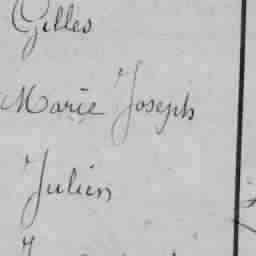 Gilles
Marie Joseph
Julien